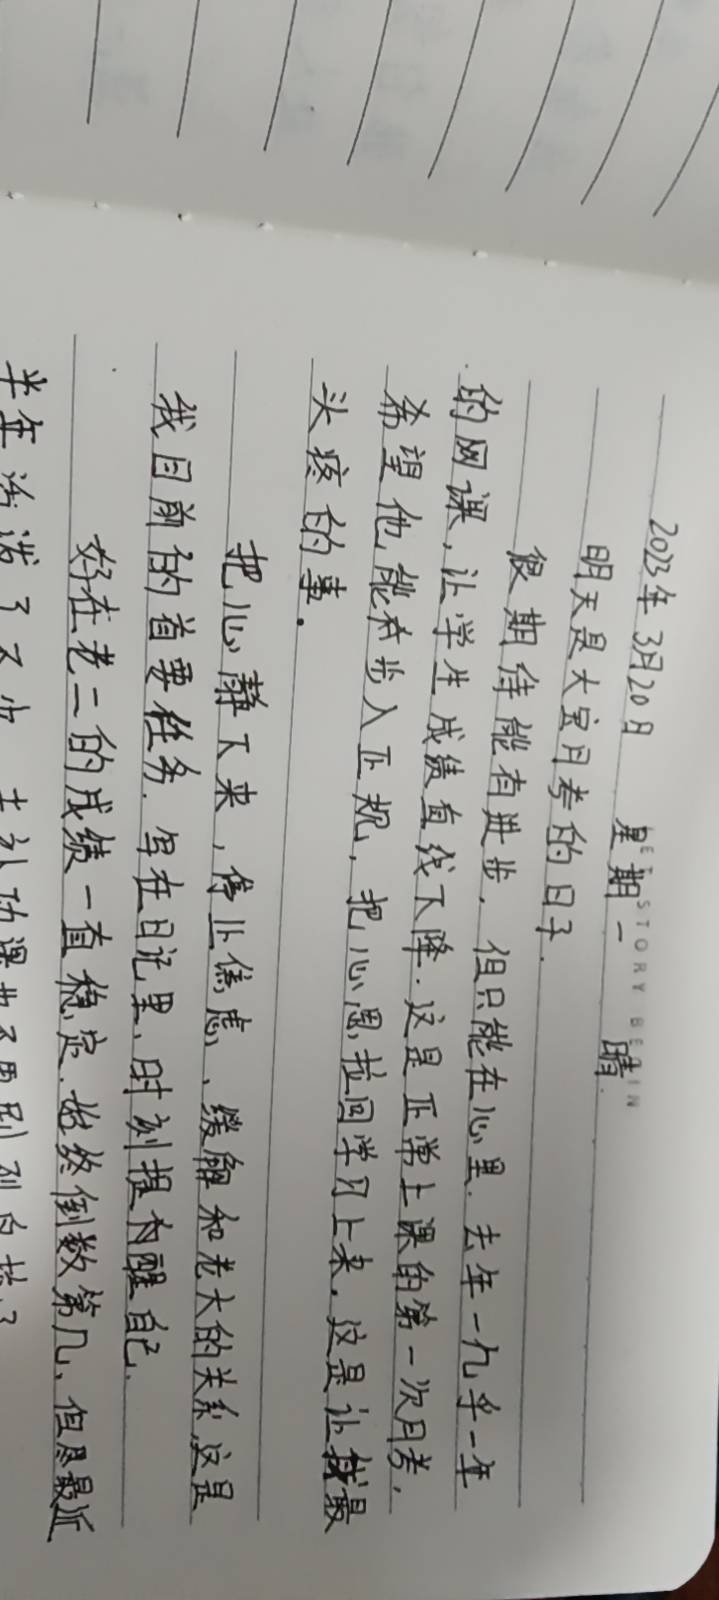 LET STORY BEGIN
2023年3月20日 星期一 晴.
明天是大宝月考的日子.
很期待能有进步,但只能在心里.去年一几乎一年
的网课,让学生成绩直线下降.这是正常上课的第一次月考,
希望他能步入正规,把心思拉回学习上来,这是让我最
头疼的事.
把心静下来,停止焦虑、缓解和老大的关系,这是
我目前的首要任务.写在日记里,时刻提醒自己.
好在老二的成绩一直稳定.始终倒数第几,但是最近
半年活泼了不少